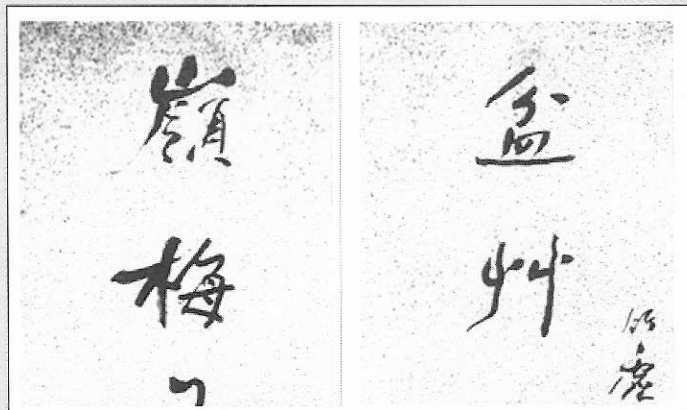 盆艸
嶺梅